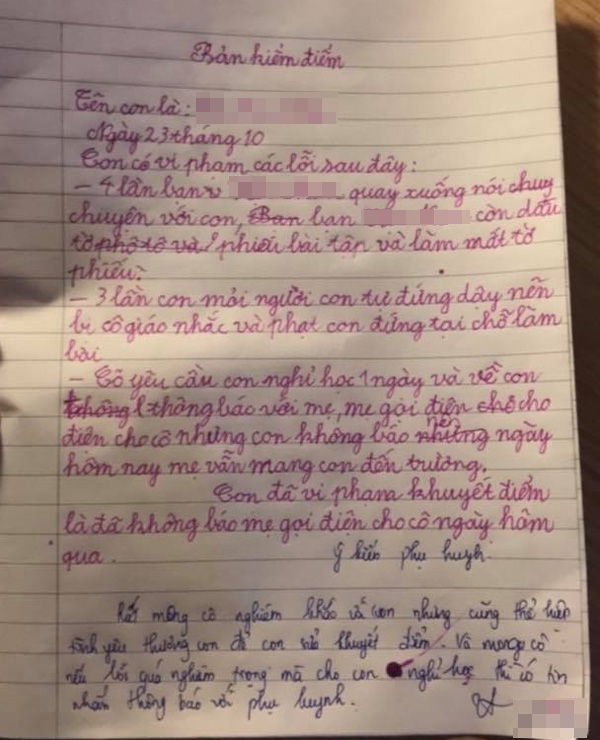 Bản kiểm điểm
Tên con là:
Ngày 23 tháng 10
Con có vi phạm các lỗi sau đây:
- 4 lần bạn quay xuống nói chuy
chuyện với con, Ban bạn còn dấu
tờ phô tô và phiếu bài tập và làm mất tờ
phiếu.
- 3 lần con mỏi người con tự đứng dậy nên
bị cô giáo nhắc và phạt con đứng tại chỗ làm
bài
- Cô yêu cầu con nghỉ học 1 ngày và về con
không thông báo với mẹ, mẹ gọi điện cho
điện cho cô nhưng con không báo nên ngày
hôm nay mẹ vẫn mang con đến trường.
Con đã vi phạm khuyết điểm
là đã không báo mẹ gọi điện cho cô ngày hôm
qua.
Ý kiến phụ huynh.
Rất mong cô nghiêm khắc với con nhưng cũng thể hiện
tình yêu thương con để con sửa khuyết điểm. Và mong cô
nếu lỗi quá nghiêm trọng mà cho con nghỉ học thì cô tin
nhắn thông báo với phụ huynh.